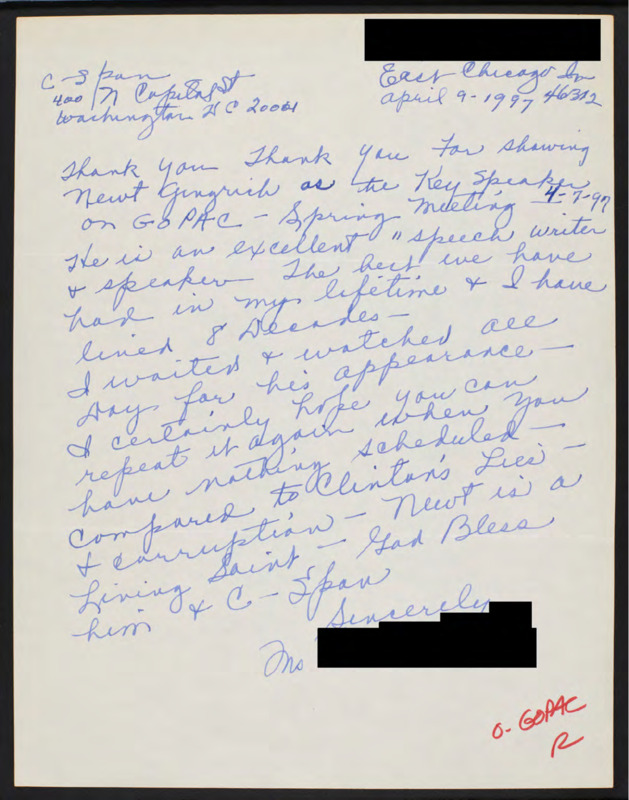 C-Span
400 N Capitol St
Washington DC 20001
East Chicago In
April 9-1997 46312
Thank you Thank you For showing
Newt Gingrich as the Key Speaker
on GOPAC - Spring Meeting 4-7-97
He is an excellent "speech writer
& speaker The best we have
had in my lifetime & I have
lived 8 Decades -
I waited & watched all
Day for his appearance -
I certainly hope you can
repeat it again when you
have nothing scheduled -
Compared to Clinton's Lies -
& corruption - Newt is a
Living Saint - God Bless
him & C-Span
Sincerely
O-GOPAC
R